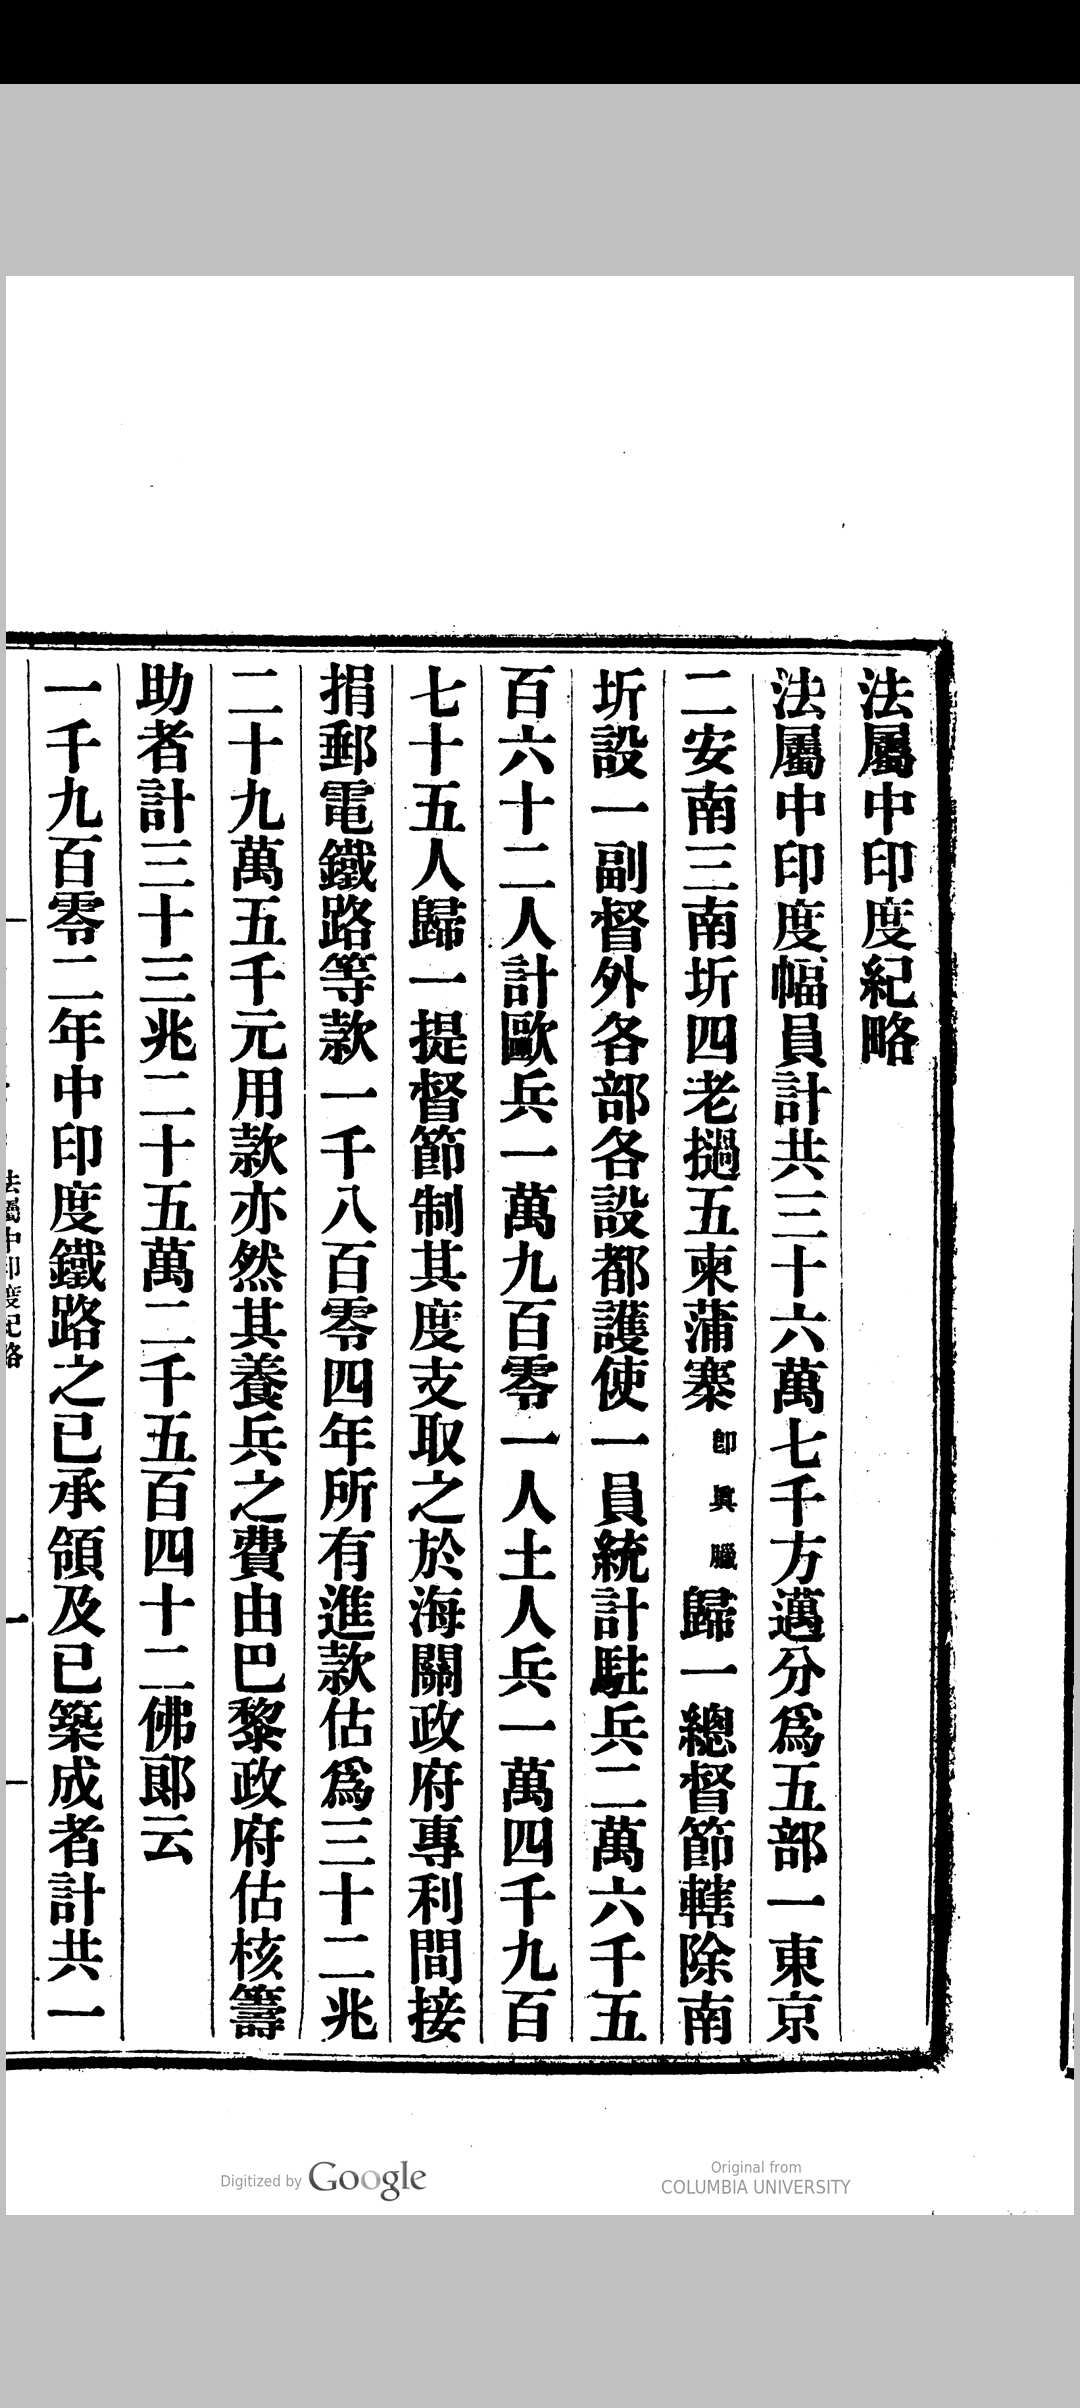 法屬中印度紀略
法屬中印度幅員計共三十六萬七千方邁分爲五部一東京
二安南三南圻四老撾五柬蒲寨卽眞臘歸一總督節轄除南
圻設一副督外各部各設都護使一員統計駐兵二萬六千五
百六十二人計歐兵一萬九百零一人土人兵一萬四千九百
七十五人歸一提督節制其度支取之於海關政府專利間接
捐郵電鐵路等款一千八百零四年所有進款估爲三十二兆
二十九萬五千元用款亦然其養兵之費由巴黎政府估核籌
助者計三十三兆二十五萬二千五百四十二佛郎云
一千九百零二年中印度鐵路之已承領及已築成者計共一
法屬中印度紀略
Digitized by Google
Original from
COLUMBIA UNIVERSITY